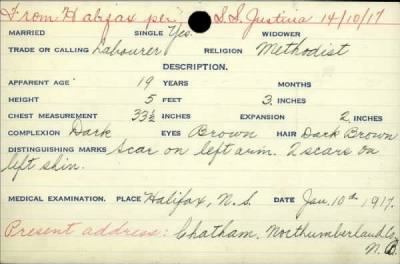 From Halifax per S.S. Justina 14/10/17
MARRIED SINGLE Yes. WIDOWER
TRADE OR CALLING Labourer RELIGION Methodist
DESCRIPTION.
APPARENT AGE 19 YEARS MONTHS
HEIGHT 5 FEET 3 INCHES
CHEST MEASUREMENT 33½ INCHES EXPANSION 2 INCHES
COMPLEXION Dark EYES Brown HAIR Dark Brown
DISTINGUISHING MARKS Scar on left arm. 2 scars on
left shin.
MEDICAL EXAMINATION. PLACE Halifax, N.S. DATE Jan. 10th 1917.
Present address: Chatham. Northumberland Co.
N.B.